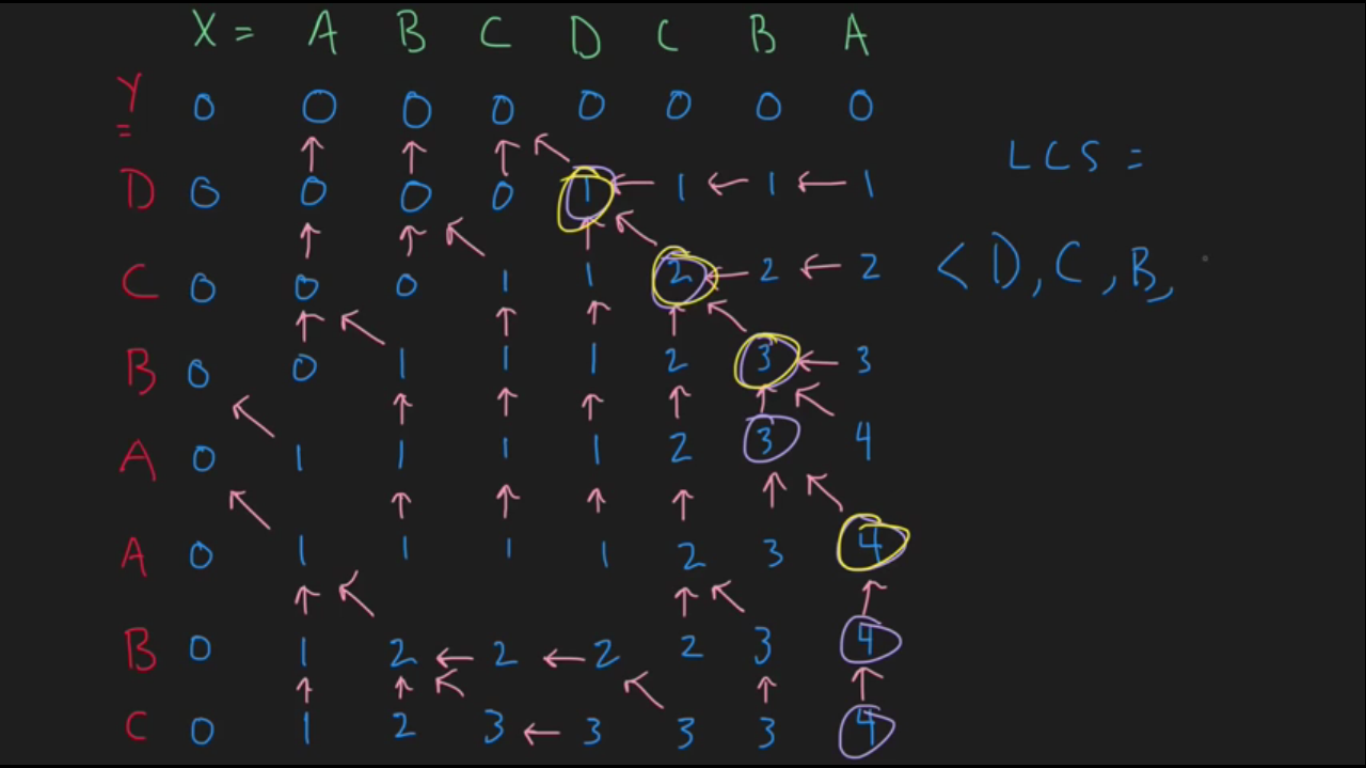 X = A B C D C B A
Y = 0 0 0 0 0 0 0 0
LCS =
D 0 0 0 0 1 1 1 1
C 0 0 0 1 1 2 2 2
< D, C, B,
B 0 0 1 1 1 2 3 3
A 0 1 1 1 1 2 3 4
A 0 1 1 1 1 2 3 4
B 0 1 2 2 2 2 3 4
C 0 1 2 3 3 3 3 4